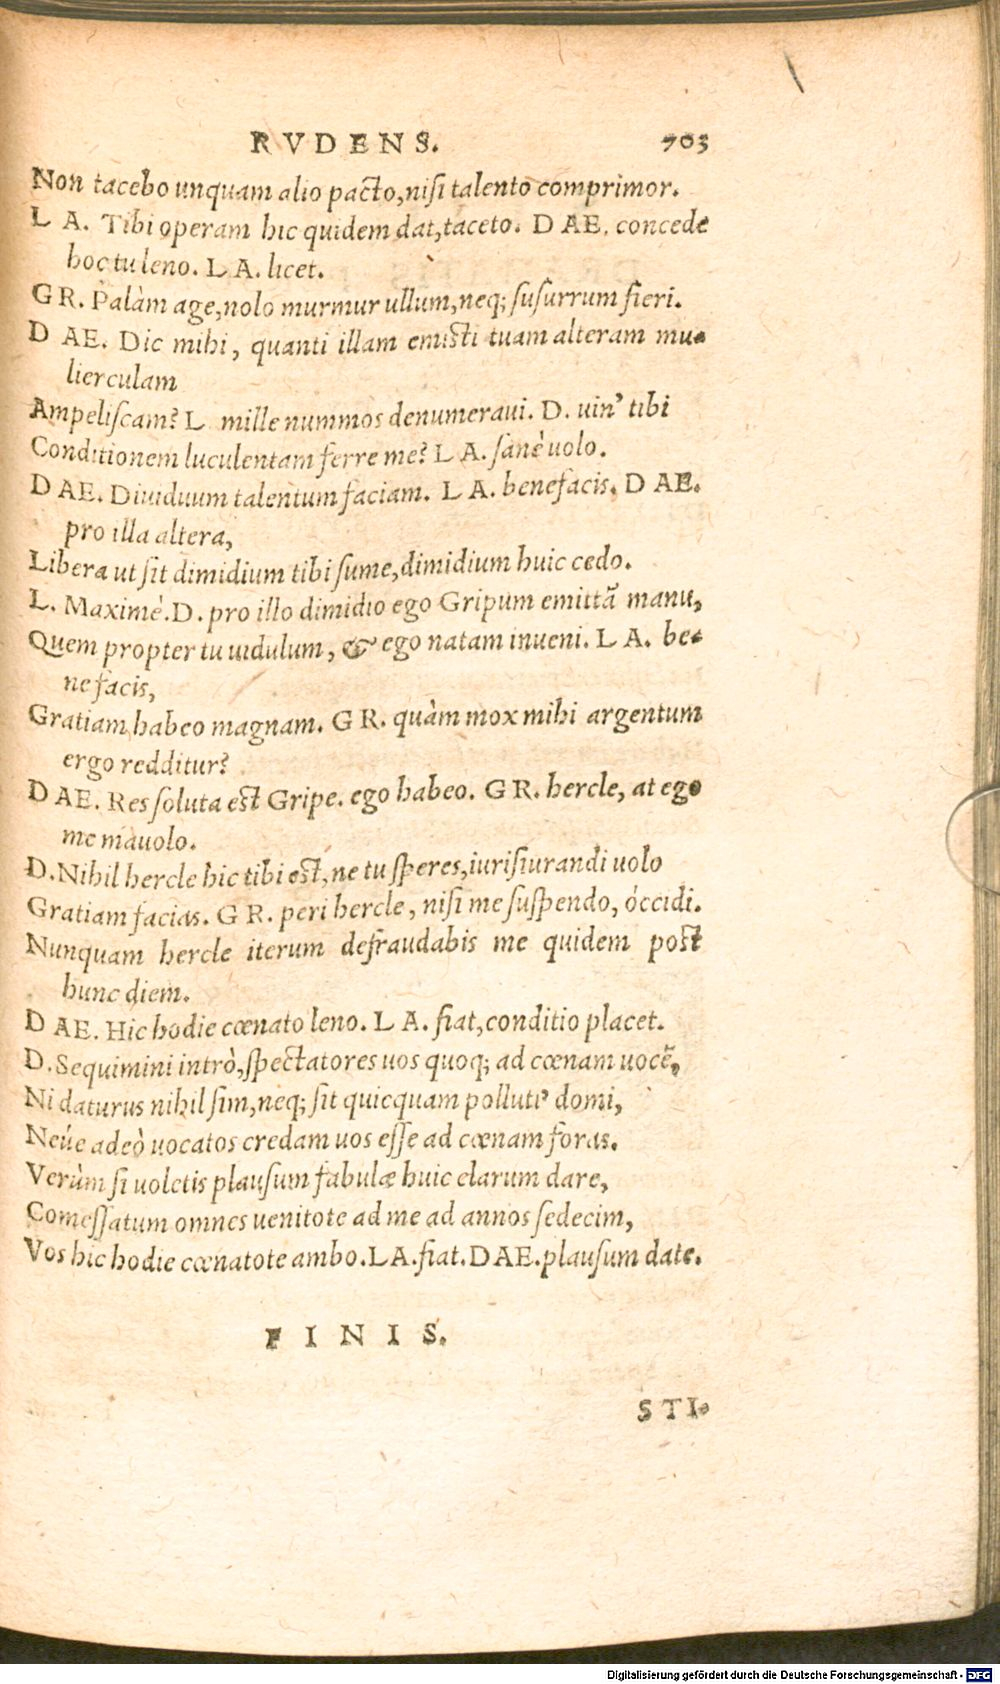 RVDENS. 703
Non tacebo unquam alio pacto, nisi talento comprimor.
LA. Tibi operam hic quidem dat, taceto. DAE. concede
hoc tu leno. LA. licet.
GR. Palàm age, nolo murmur ullum, neq; susurrum fieri.
DAE. Dic mihi, quanti illam emisti tuam alteram mu-
lierculam
Ampeliscam? L mille nummos denumeraui. D. uin' tibi
Conditionem luculentam ferre me? LA. sanè uolo.
DAE. Diuiduum talentum faciam. LA. benefacis. DAE.
pro illa altera,
Libera ut sit dimidium tibi sume, dimidium huic cedo.
L. Maximè. D. pro illo dimidio ego Gripum emittã manu,
Quem propter tu uidulum, & ego natam inueni. LA. be-
ne facis,
Gratiam habeo magnam. GR. quàm mox mihi argentum
ergo redditur?
DAE. Res soluta est Gripe. ego habeo. GR. hercle, at ego
me mauolo.
D. Nihil hercle hic tibi est, ne tu speres, iurisiurandi uolo
Gratiam facias. GR. peri hercle, nisi me suspendo, óccidi.
Nunquam hercle iterum defraudabis me quidem post
hunc diem.
DAE. Hic hodie cœnato leno. LA. fiat, conditio placet.
D. Sequimini intrò, spectatores uos quoq; ad cœnam uocẽ,
Ni daturus nihil sim, neq; sit quicquam polluti' domi,
Neúe adeò uocatos credam uos esse ad cœnam foras.
Verùm si uoletis plausum fabulæ huic clarum dare,
Comessatum omnes uenitote ad me ad annos sedecim,
Vos hic hodie cœnatote ambo. LA. fiat. DAE. plausum date.
FINIS.
STI-
Digitalisierung gefördert durch die Deutsche Forschungsgemeinschaft - DFG